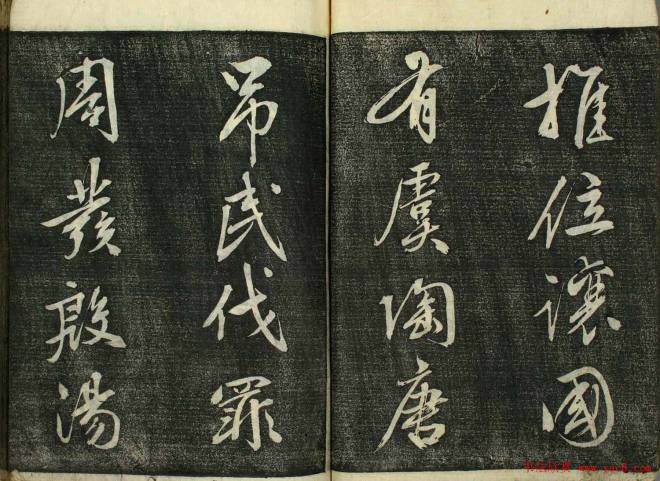 推位讓國
有虞陶唐
吊民伐罪
周發殷湯